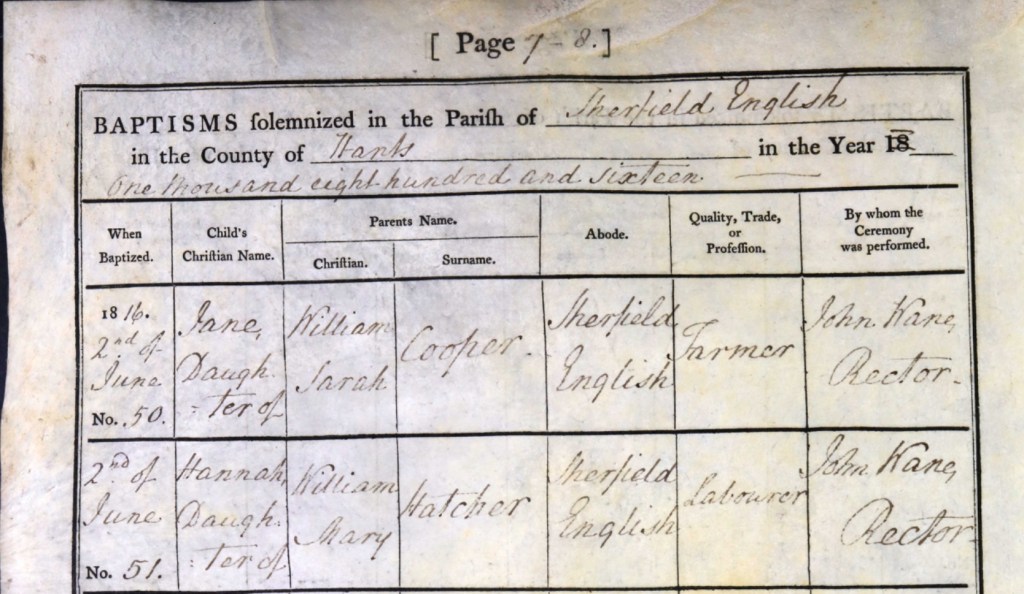 [ Page 7 - 8. ]
BAPTISMS ſolemnized in the Pariſh of Sherfield English
in the County of Hants in the Year 18
One thousand eight hundred and sixteen
When Baptized.
Child's Chriſtian Name.
Parents Name.
Chriſtian.
Surname.
Abode.
Quality, Trade, or Profeſſion.
By whom the Ceremony was performed.
1816.
2nd of
June
No. 50.
Jane,
Daugh
:ter of
William
Sarah
Cooper.
Sherfield
English
Farmer
John Kane,
Rector.
2nd of
June
No. 51.
Hannah,
Daugh:
:ter of
William
Mary
Hatcher
Sherfield
English
Labourer
John Kane,
Rector